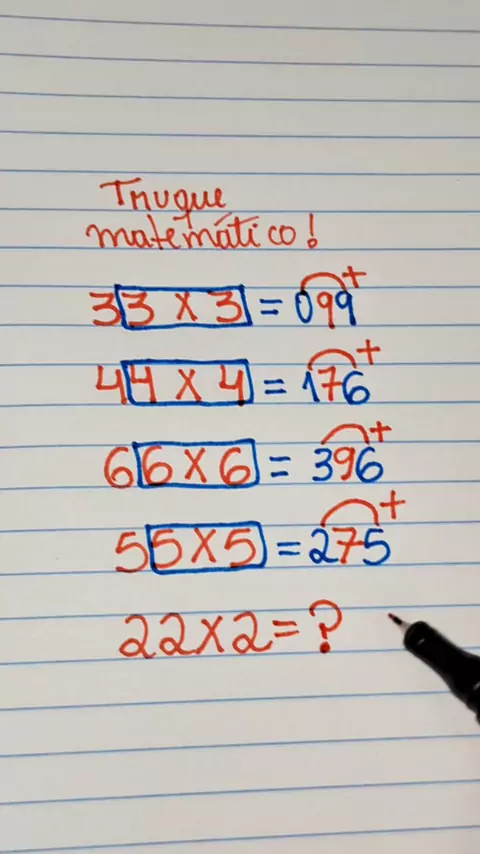 Truque
matemático!
33 x 3 = 099 +
44 x 4 = 176 +
66 x 6 = 396 +
55 x 5 = 275 +
22 x 2 = ?